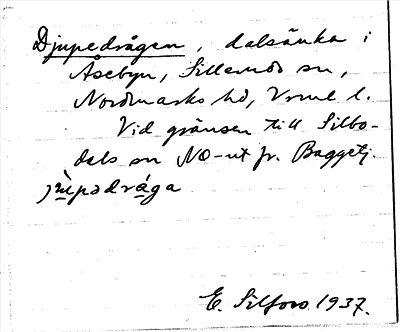 Djupedrågen, dalsänka i
Åsebyn, Sillerud sn,
Nordmarks hd, Vrml. l.
Vid gränsen till Silbo-
dals sn NO-ut fr. Baggetj.
E. Silfors 1937.